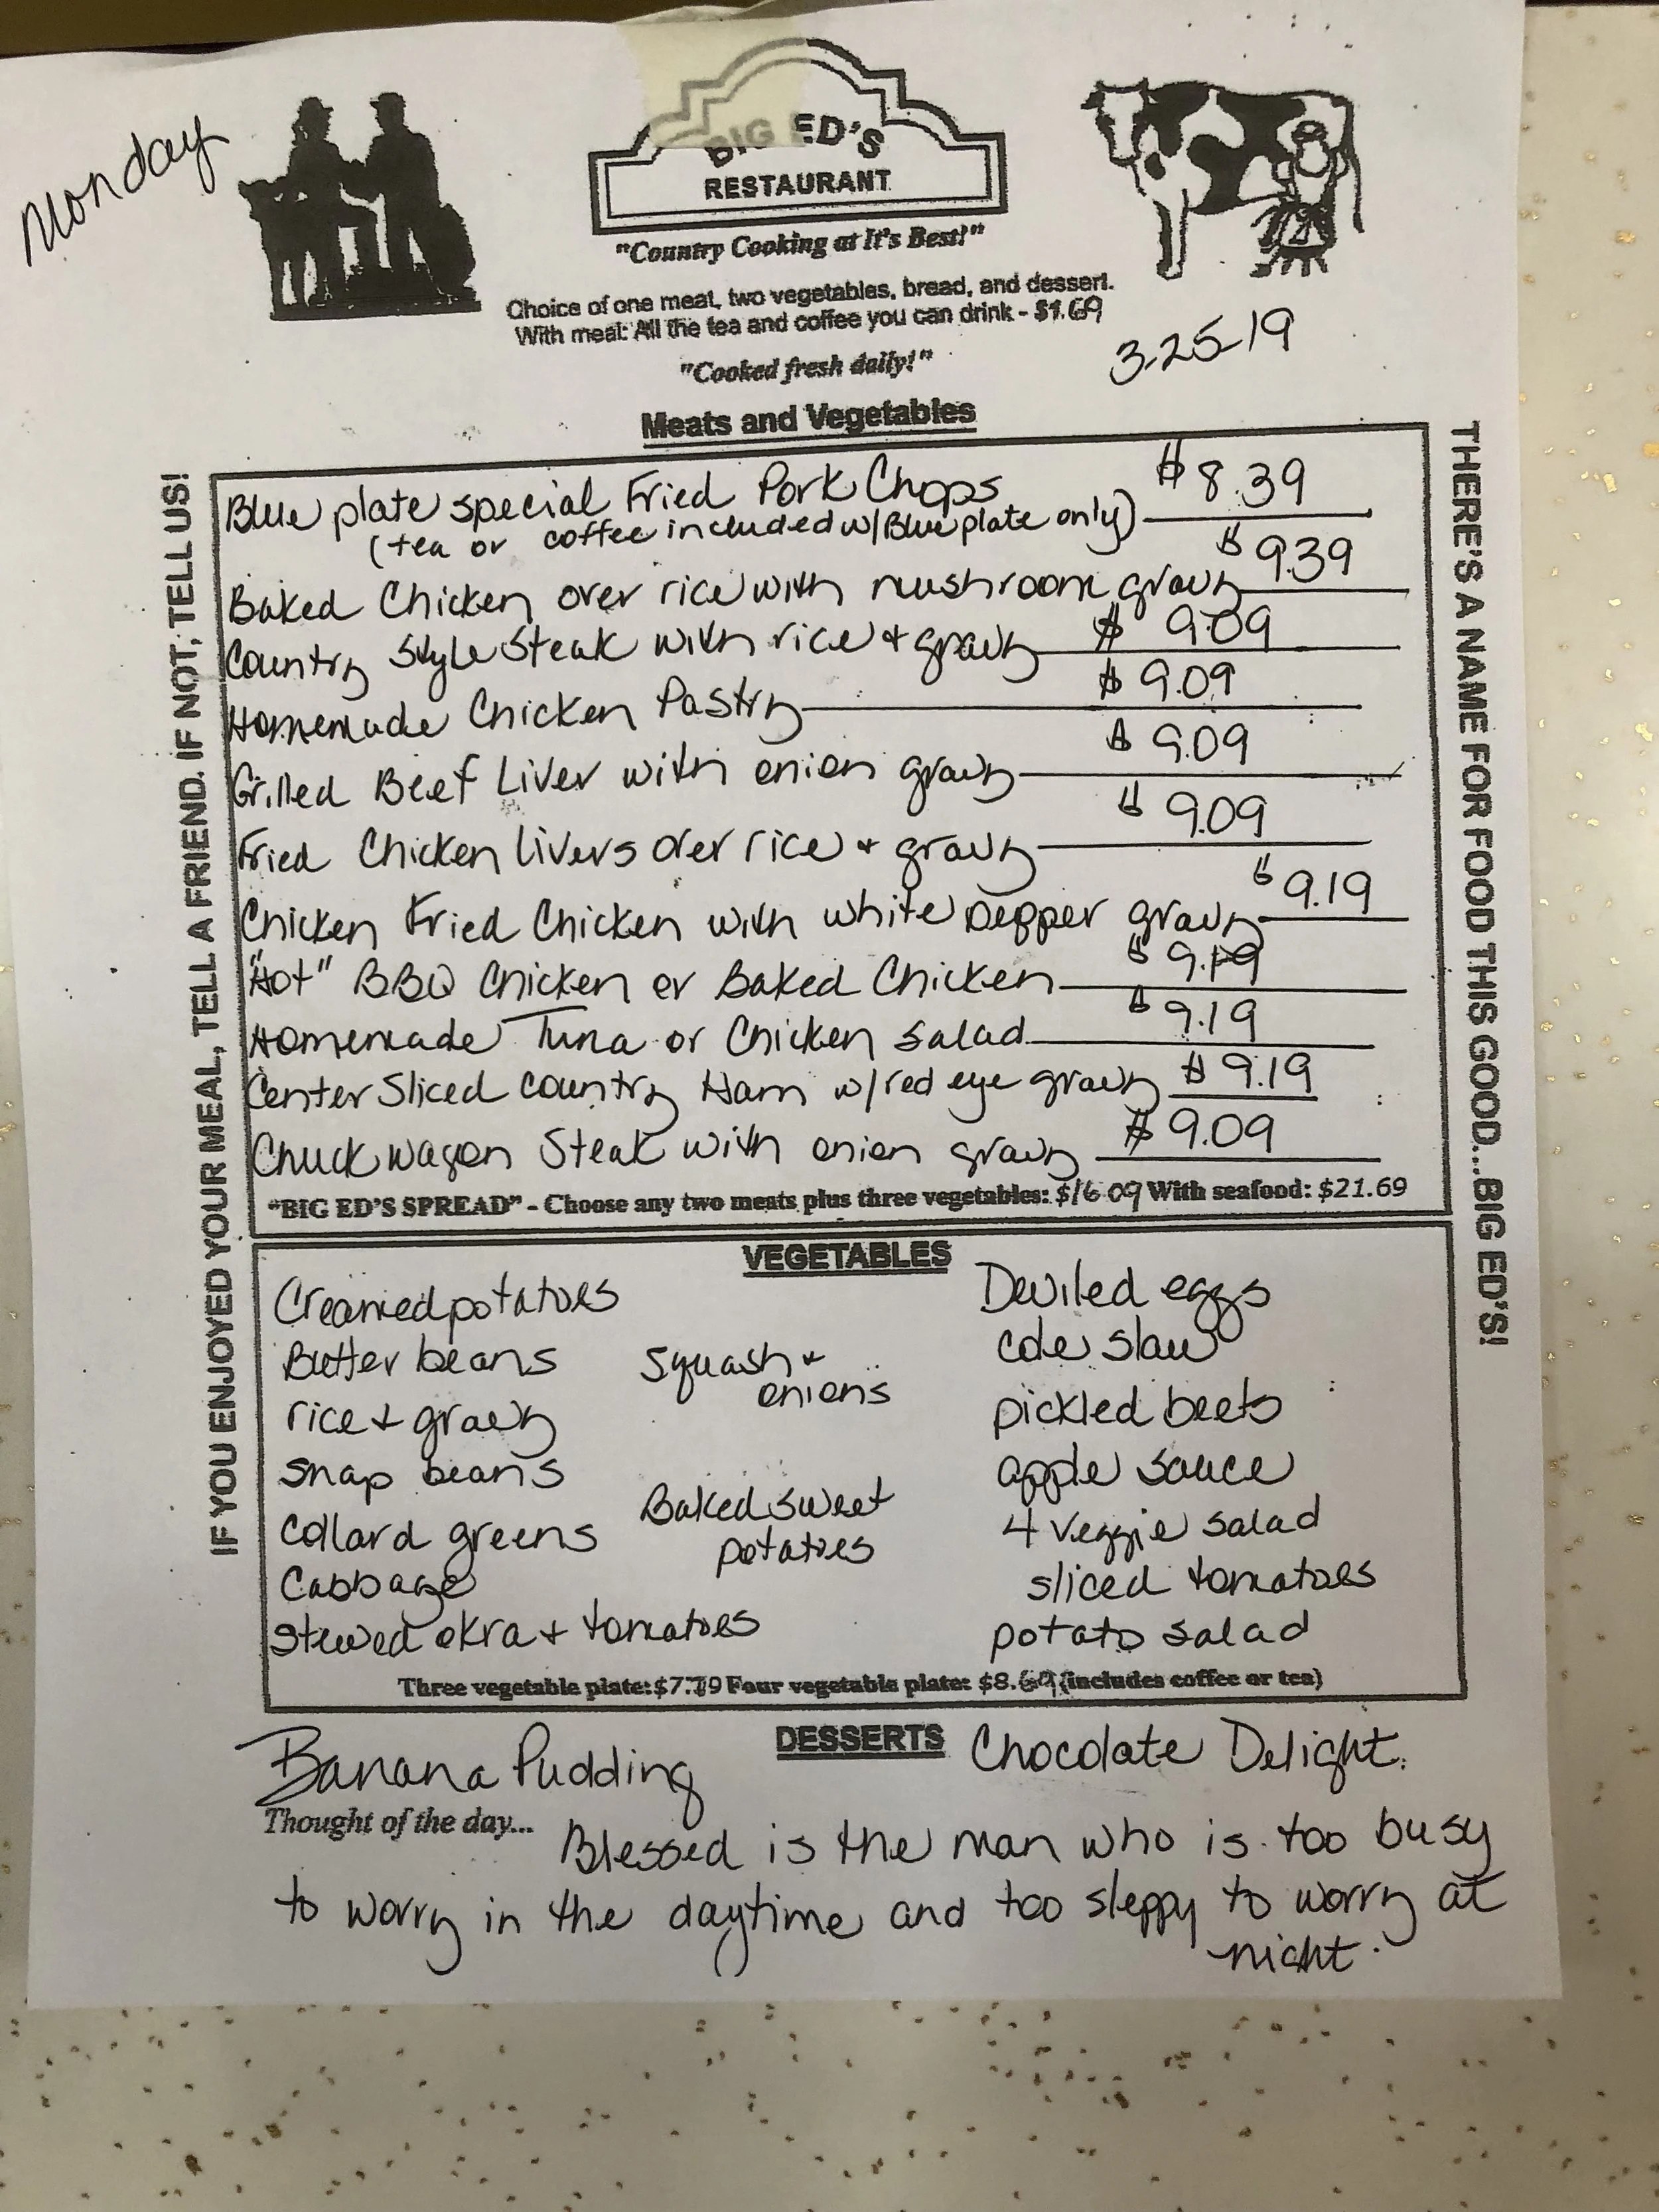 Monday
BIG ED'S
RESTAURANT
"Country Cooking at It's Best!"
Choice of one meat, two vegetables, bread, and dessert.
With meal: All the tea and coffee you can drink - $1.69
"Cooked fresh daily!"
3-25-19
IF YOU ENJOYED YOUR MEAL, TELL A FRIEND. IF NOT, TELL US!
THERE'S A NAME FOR FOOD THIS GOOD...BIG ED'S!
Meats and Vegetables
Blue plate special Fried Pork Chops $8.39
(tea or coffee included w/Blue plate only)
Baked Chicken over rice with mushroom gravy $9.39
Country Style Steak with rice + gravy $9.09
Homemade Chicken Pastry $9.09
Grilled Beef Liver with onion gravy $9.09
Fried Chicken Livers over rice + gravy $9.09
Chicken Fried Chicken with white pepper gravy $9.19
"Hot" BBQ Chicken or Baked Chicken $9.19
Homemade Tuna or Chicken Salad $9.19
Center Sliced Country Ham w/red eye gravy $9.19
Chuckwagon Steak with onion gravy $9.09
"BIG ED'S SPREAD" - Choose any two meats plus three vegetables: $16.09 With seafood: $21.69
VEGETABLES
Creamed potatoes
Butter beans
rice + gravy
snap beans
Collard greens
Cabbage
Stewed okra + tomatoes
Squash +
onions
Baked sweet
potatoes
Deviled eggs
cole slaw
pickled beets
apple sauce
4 veggie salad
sliced tomatoes
potato salad
Three vegetable plate: $7.79 Four vegetable plate: $8.69 (includes coffee or tea)
DESSERTS
Banana Pudding
Chocolate Delight.
Thought of the day... Blessed is the man who is too busy
to worry in the daytime and too sleppy to worry at
night.